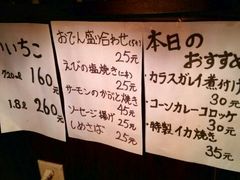 いいちこ
720㎖ 160元
1.8ℓ 260元
おでん盛り合わせ(5ヶ)
25元
えびの塩焼き(二本)
25元
サーモンのかぶと焼き
45元
ソーセージ揚げ 25元
しめさば 25元
本日の
おすすめ
・カラスガレイ煮付け
30元
・コーンカレーコロッケ
30元
・特製イカ焼き
35元